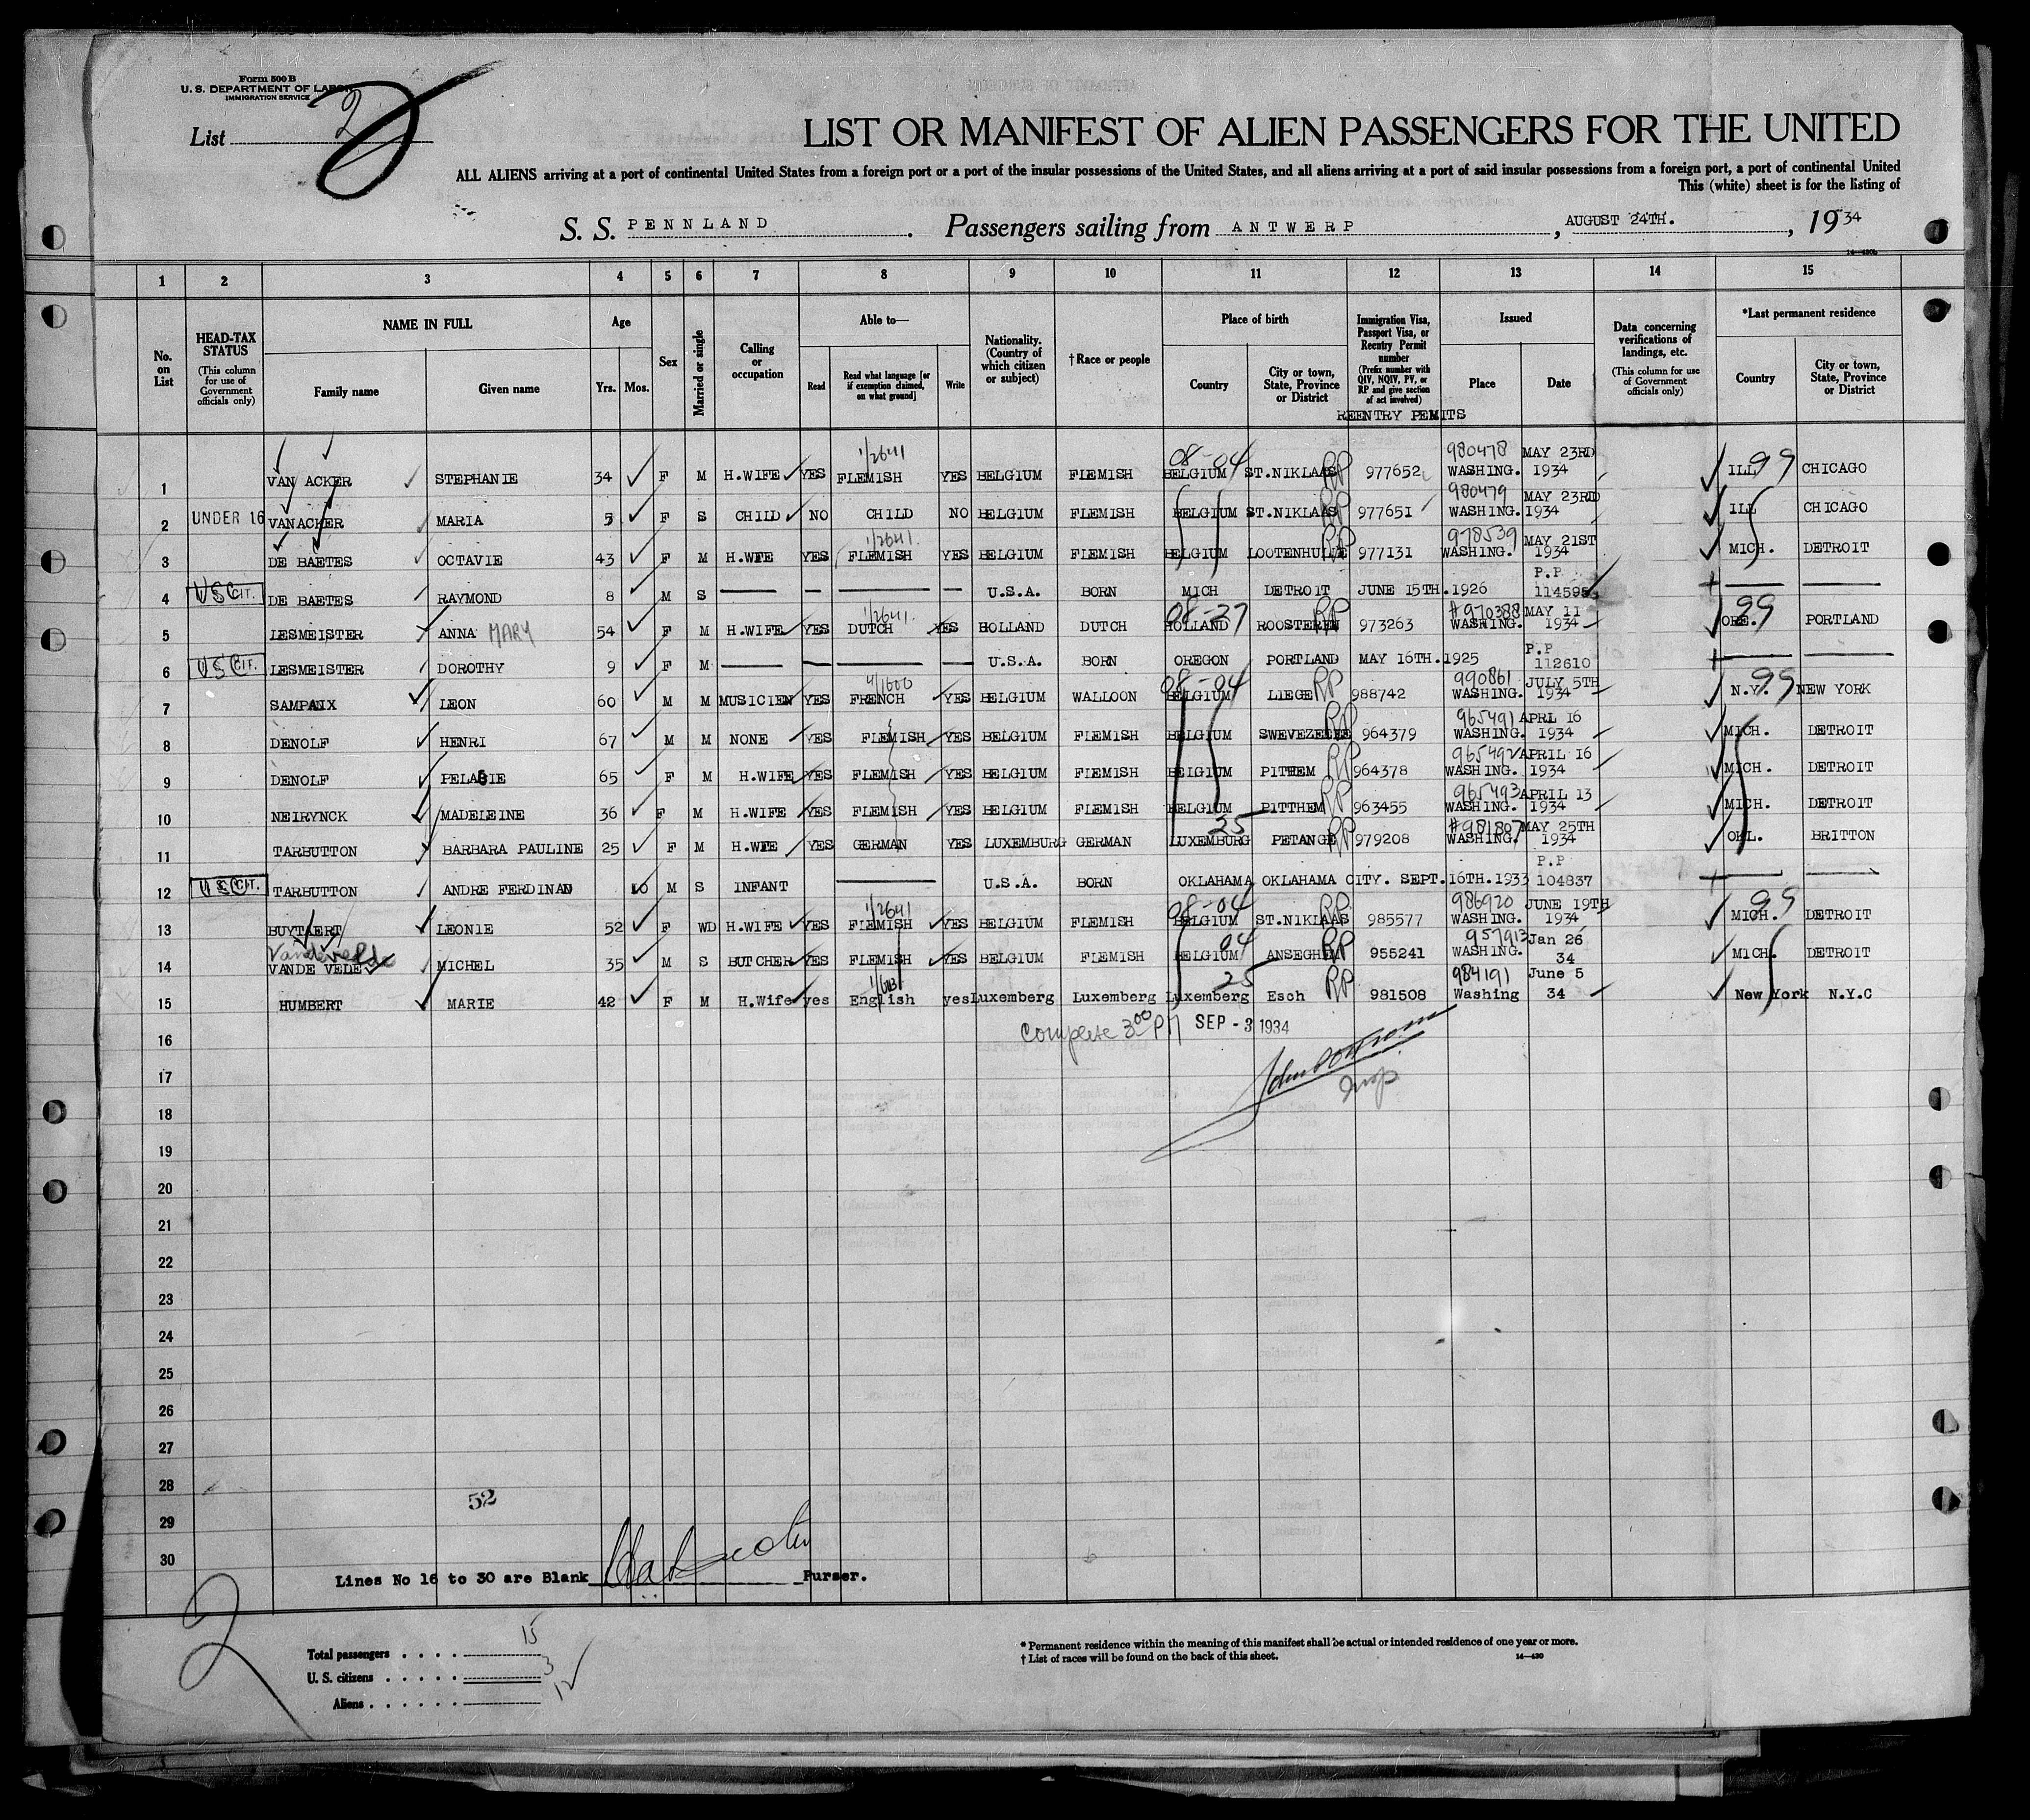 Form 500 B
U. S. DEPARTMENT OF LABOR
IMMIGRATION SERVICE
List 2
LIST OR MANIFEST OF ALIEN PASSENGERS FOR THE UNITED
ALL ALIENS arriving at a port of continental United States from a foreign port or a port of the insular possessions of the United States, and all aliens arriving at a port of said insular possessions from a foreign port, a port of continental United
This (white) sheet is for the listing of
S. S. PENNLAND. Passengers sailing from ANTWERP, AUGUST 24TH., 1934
1 2 3 4 5 6 7 8 9 10 11 12 13 14 15
No. on List
HEAD-TAX STATUS (This column for use of Government officials only)
NAME IN FULL
Family name
Given name
Age
Yrs. Mos.
Sex
Married or single
Calling or occupation
Able to—
Read
Read what language [or if exemption claimed, on what ground]
Write
Nationality. (Country of which citizen or subject)
†Race or people
Place of birth
Country
City or town, State, Province or District
Immigration Visa, Passport Visa, or Reentry Permit number (Prefix number with QIV, NQIV, PV, or RP and give section of act involved)
REENTRY PEMITS
Issued
Place
Date
Data concerning verifications of landings, etc. (This column for use of Government officials only)
*Last permanent residence
Country
City or town, State, Province or District
1 VAN ACKER STEPHANIE 34 F M H.WIFE YES FLEMISH 1/2641 YES BELGIUM FLEMISH BELGIUM 08-04 ST.NIKLAAS RP 977652 980478 WASHING. MAY 23RD 1934 ILL 99 CHICAGO
2 UNDER 16 VANACKER MARIA 5 F S CHILD NO CHILD NO BELGIUM FLEMISH BELGIUM ST.NIKLAAS RP 977651 980479 WASHING. MAY 23RD 1934 ILL CHICAGO
3 DE BAETES OCTAVIE 43 F M H.WIFE YES FLEMISH 1/2641. YES BELGIUM FLEMISH BELGIUM LOOTENHULLE RP 977131 978539 WASHING. MAY 21ST 1934 MICH. DETROIT
4 USCIT. DE BAETES RAYMOND 8 M S U.S.A. BORN MICH DETROIT JUNE 15TH.1926 P.P 114595
5 LESMEISTER ANNA MARY 54 F M H.WIFE YES DUTCH 1/2641. YES HOLLAND DUTCH HOLLAND 08-27 ROOSTEREN RP 973263 #970388 WASHING. MAY 11 1934 ORE. 99 PORTLAND
6 USCIT. LESMEISTER DOROTHY 9 F M U.S.A. BORN OREGON PORTLAND MAY 16TH.1925 P.P 112610
7 SAMPAIX LEON 60 M M MUSICIEN YES FRENCH 4/1600 YES BELGIUM WALLOON BELGIUM 08-04 LIEGE RP 988742 990861 WASHING. JULY 5TH 1934 N.Y. 99 NEW YORK
8 DENOLF HENRI 67 M M NONE YES FLEMISH YES BELGIUM FLEMISH BELGIUM SWEVEZEELE RP 964379 965491 WASHING. APRL 16 1934 MICH. DETROIT
9 DENOLF PELAGIE 65 F M H.WIFE YES FLEMISH YES BELGIUM FLEMISH BELGIUM PITHEM RP 964378 965492 WASHING. APRIL 16 1934 MICH. DETROIT
10 NEIRYNCK MADELEINE 36 F M H.WIFE YES FLEMISH YES BELGIUM FLEMISH BELGIUM PITTHEM RP 963455 965493 WASHING. APRIL 13 1934 MICH. DETROIT
11 TARBUTTON BARBARA PAULINE 25 F M H.WIFE YES GERMAN YES LUXEMBURG GERMAN LUXEMBURG 25 PETANGE RP 979208 #981807 WASHING. MAY 25TH 1934 OKL. BRITTON
12 USCIT. TARBUTTON ANDRE FERDINAND 10 M S INFANT U.S.A. BORN OKLAHOMA OKLAHOMA CITY. SEPT.16TH.1933 P.P 104837
13 BUYTAERT LEONIE 52 F WD H.WIFE YES FLEMISH 1/2641 YES BELGIUM FLEMISH BELGIUM 08-04 ST.NIKLAAS 985577 986920 WASHING. JUNE 19TH 1934 MICH. 99 DETROIT
14 Vandevelde VANDE VELDE MICHEL 35 M S BUTCHER YES FLEMISH YES BELGIUM FLEMISH BELGIUM 04 ANSEGHEM RP 955241 957913 WASHING. Jan 26 34 MICH. DETROIT
15 HUMBERT MARIE 42 F M H.Wife yes English yes Luxemberg Luxemberg Luxemberg 25 Esch RP 981508 984191 Washing June 5 34 New York N.Y.C
16 Complete 3 00 PM SEP - 3 1934
17 Insp
18
19
20
21
22
23
24
25
26
27
28
52
29
30
Lines No 16 to 30 are Blank Purser.
2
Total passengers 15
U. S. citizens 3
Aliens 12
* Permanent residence within the meaning of this manifest shall be actual or intended residence of one year or more.
† List of races will be found on the back of this sheet.
14—430